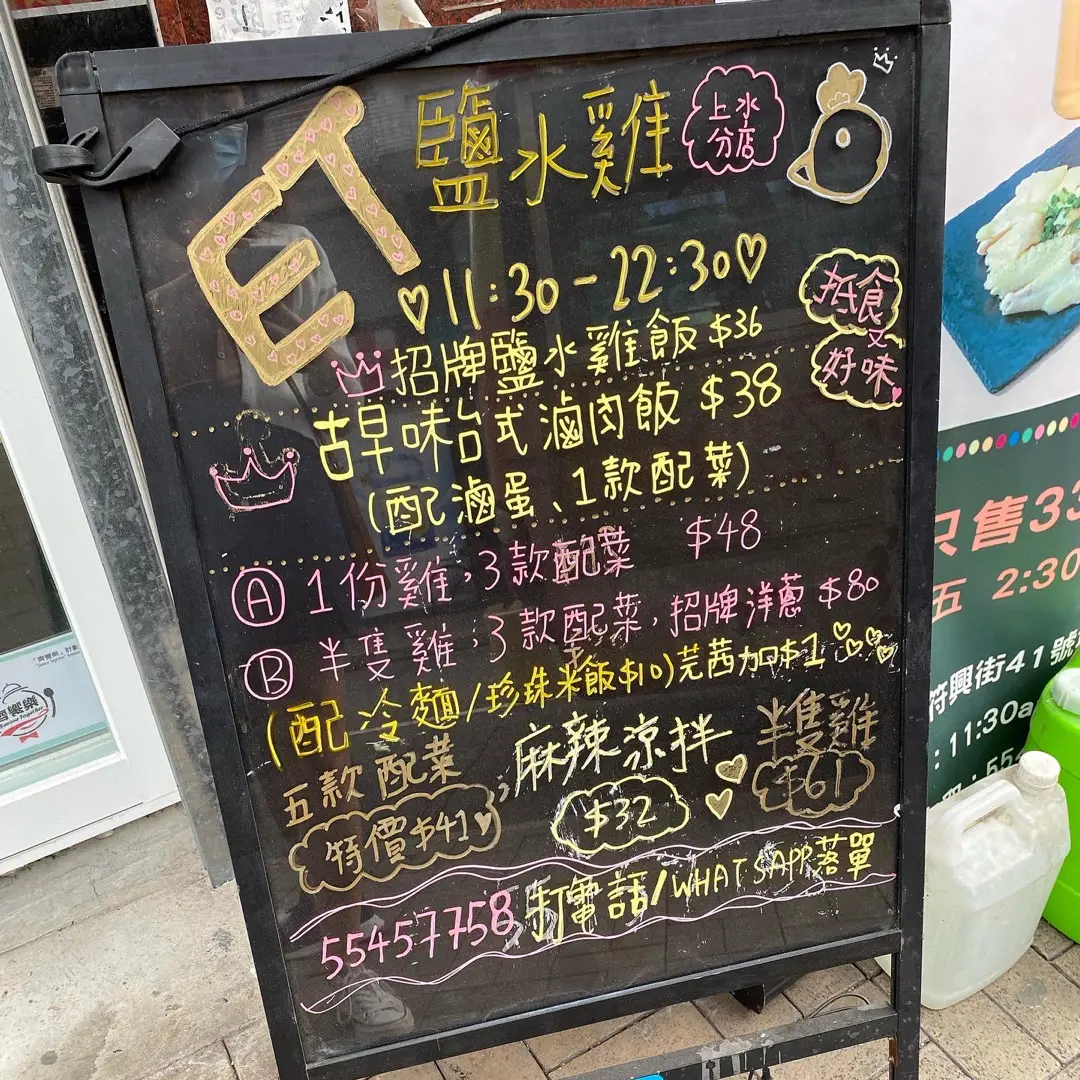 ET 鹽水雞
上水
分店
♡11:30-22:30♡
抵食
又
好味
招牌鹽水雞飯 $36
古早味台式滷肉飯 $38
(配滷蛋、1款配菜)
Ⓐ 1份雞，3款配菜 $48
Ⓑ 半隻雞，3款配菜，招牌洋蔥 $80
(配冷麵/珍珠米飯$10)芫茜加$1
五款配菜
特價$41
麻辣涼拌
$32
半隻雞
$61
55457758 打電話/WHATSAPP落單
只售33
五 2:30
符興街41號
:11:30a